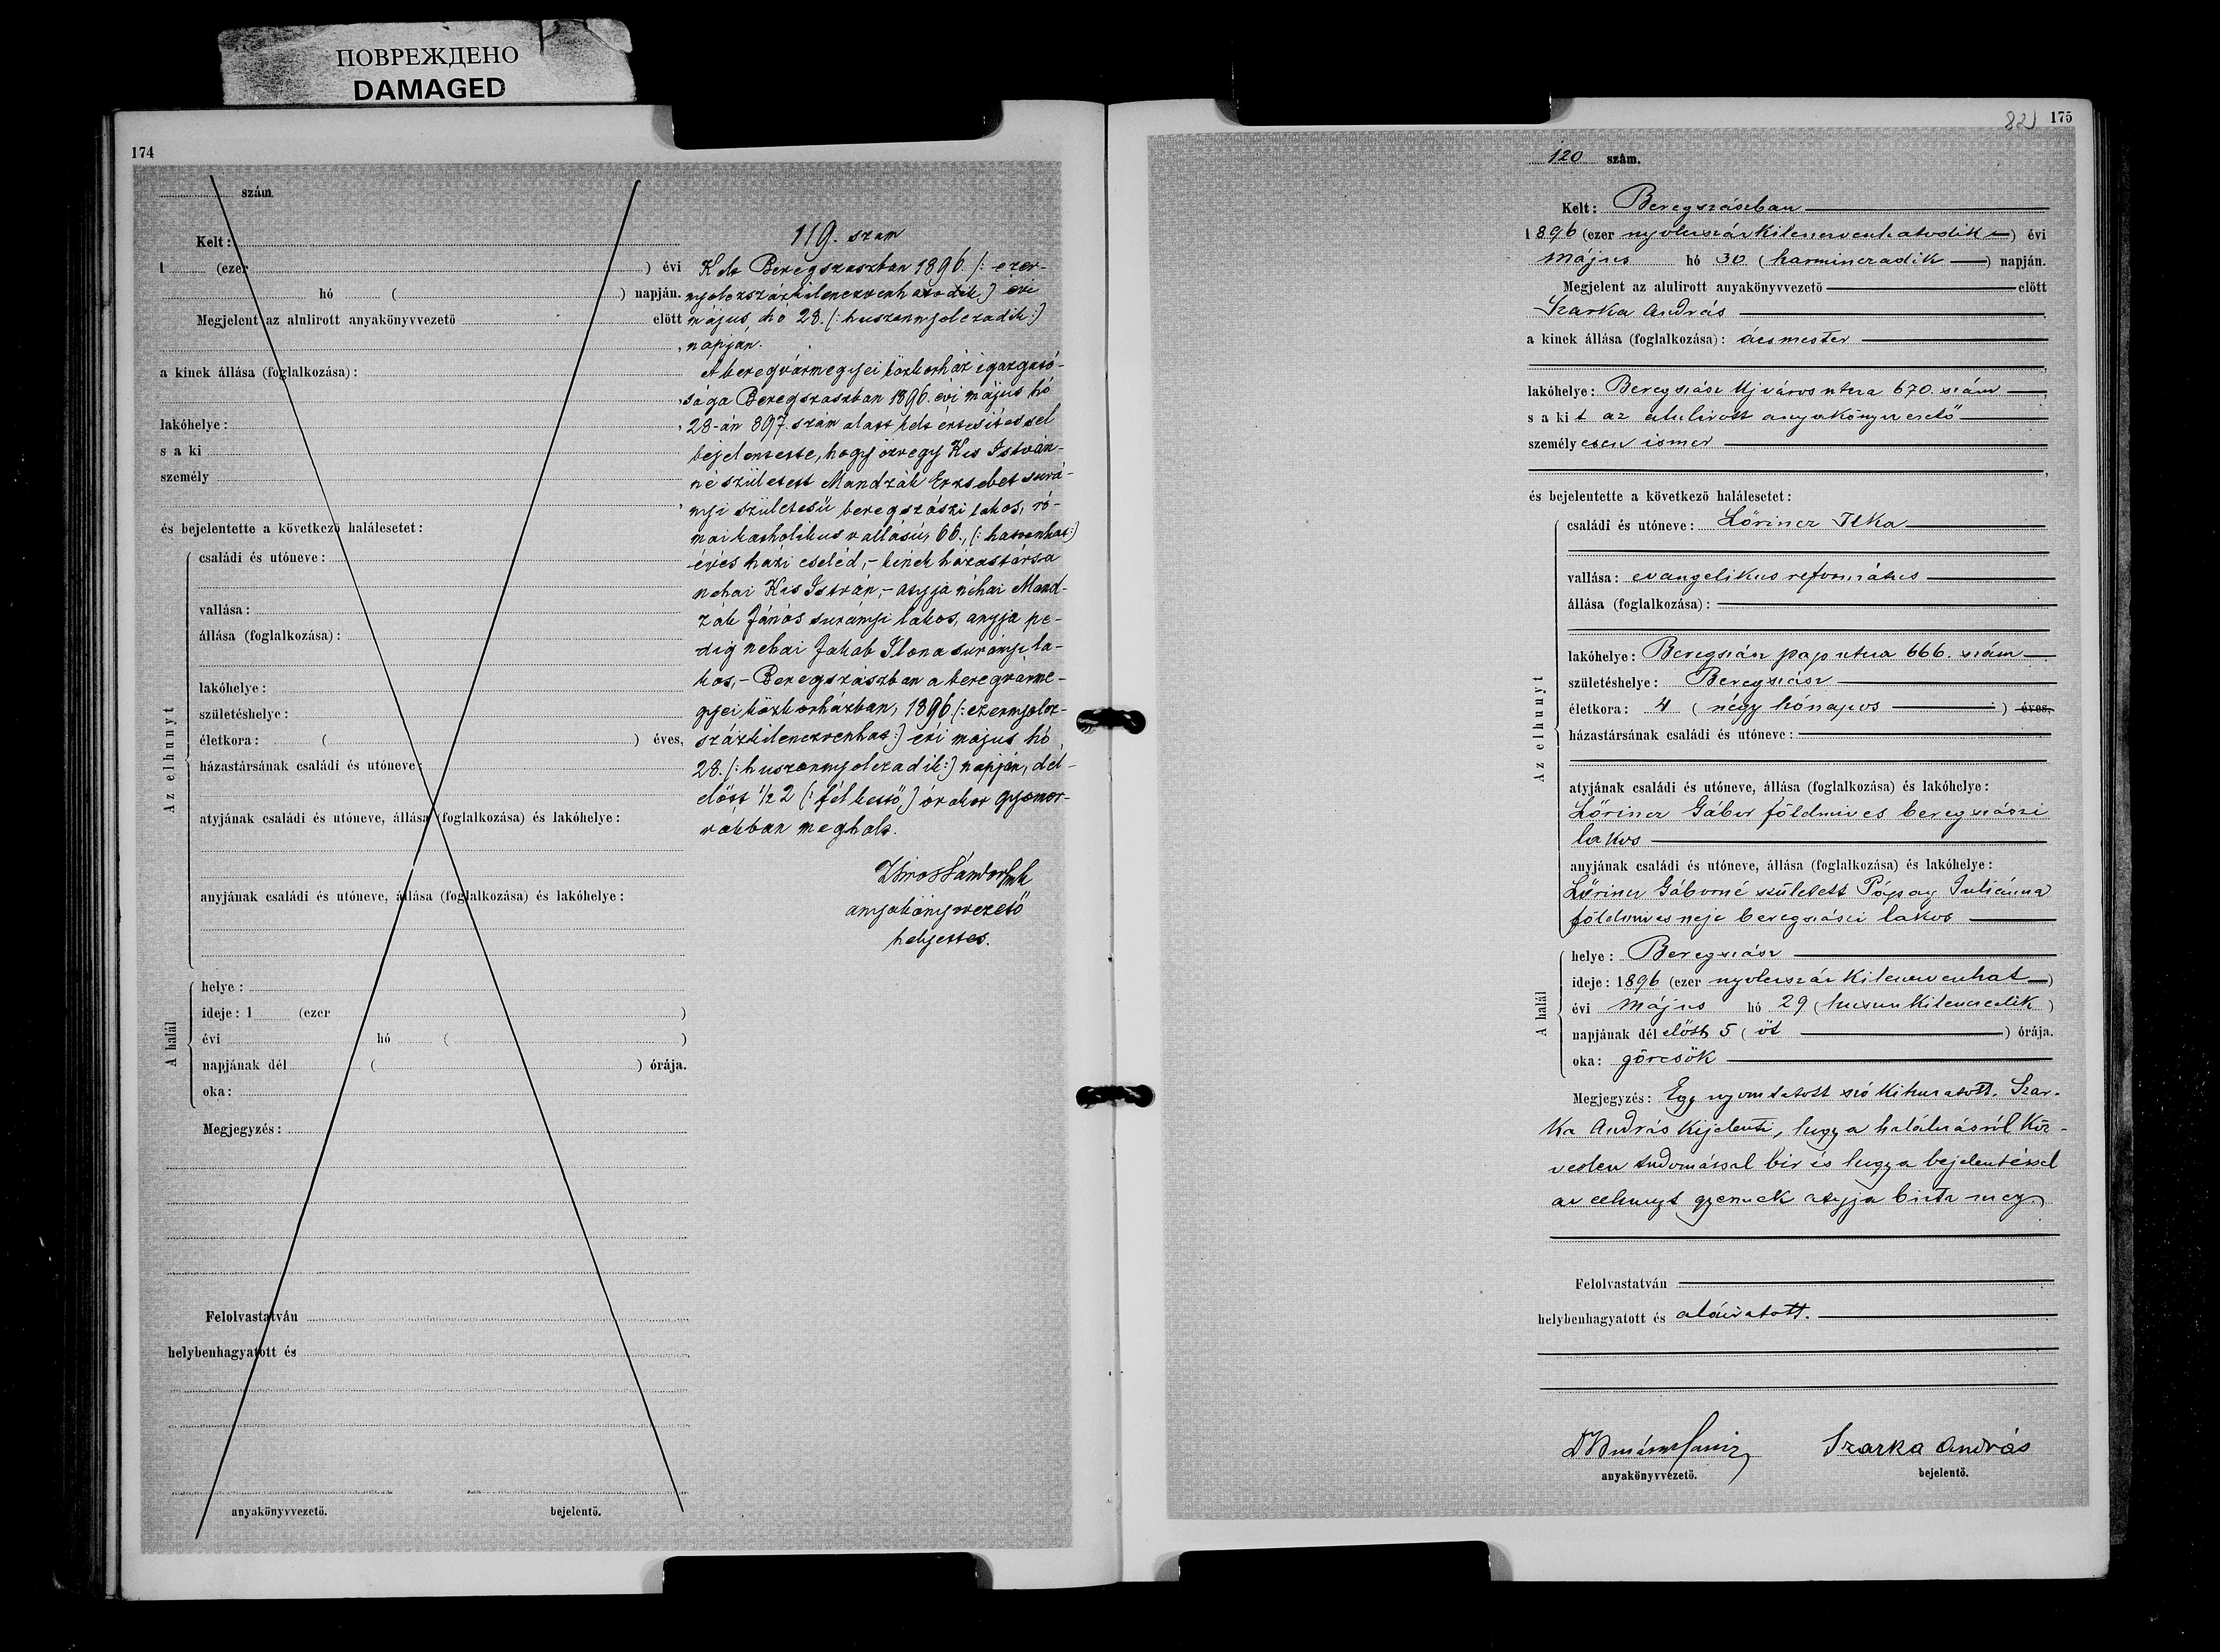 ПОВРЕЖДЕНО
DAMAGED
174
szám.
Kelt:
1 (ezer ) évi
hó ( ) napján.
Megjelent az alulirott anyakönyvvezető előtt
a kinek állása (foglalkozása):
lakóhelye:
s a ki
személy
és bejelentette a következő halálesetet:
Az elhunyt
családi és utóneve:
vallása:
állása (foglalkozása):
lakóhelye:
születéshelye:
életkora: ( ) éves,
házastársának családi és utóneve:
atyjának családi és utóneve, állása (foglalkozása) és lakóhelye:
anyjának családi és utóneve, állása (foglalkozása) és lakóhelye:
A halál
helye:
ideje: 1 (ezer )
évi hó ( )
napjának dél ( ) órája.
oka:
Megjegyzés:
Felolvastatván
helybenhagyatott és
anyakönyvvezető. bejelentő.
119. szam
Kelt Beregszaszban 1896. (: ezer-
nyolczszázkilenczvenhatodik) évi
május hó 28. (: huszonnyolczadik :)
napjan.
A beregvármegyei közkorház igazgató-
sága Beregszaszban 1896. évi május hó
28-án 897. szám alatt kelt értesitéssel
bejelentette, hogy özvegy Kis István-
né született Mandzák Erzsebet surá-
nyi születésü beregszászi lakos, ró-
mai katholikus vallásu, 66., (: hatvanhat :)
éves házi cseléd, – kinek házastársa
nehai Kis István, – atyja néhai Mand-
zák János surányi lakos, anyja pe-
dig nehai Jakab Ilona surányi la-
kos, – Beregszászban a beregvárme-
gyei közkorházban, 1896 (: ezernyolcz-
százkilenczvenhat :) évi május hó
28. (: huszonnyolczadik :) napján, dél-
előtt ½ 2 (: fél kettő) órakor gyomor-
rákban meghalt.
anyakönyvvezető
helyettes.
82 175
120 szám.
Kelt: Beregszászban
1896 (ezer nyolcszázkilencvenhatodik) évi
május hó 30 (harmincadik) napján.
Megjelent az alulirott anyakönyvvezető előtt
Szarka András
a kinek állása (foglalkozása): ácsmester
lakóhelye: Beregszász Ujváros utca 670. szám
s a kit az alulirott anyakönyvvezető
személyesen ismer
és bejelentette a következő halálesetet:
Az elhunyt
családi és utóneve: Lőrincz Ilka
vallása: evangelikus református
állása (foglalkozása):
lakóhelye: Beregszász pap utca 666. szám
születéshelye: Beregszász
életkora: 4 (négy hónapos) éves,
házastársának családi és utóneve:
atyjának családi és utóneve, állása (foglalkozása) és lakóhelye:
Lőrincz Gábor földmives beregszászi
lakos
anyjának családi és utóneve, állása (foglalkozása) és lakóhelye:
Lőrincz Gáborné született Pápay Juliánna
földmives neje beregszászi lakos
A halál
helye: Beregszász
ideje: 1896 (ezer nyolcszázkilencvenhat)
évi május hó 29 (huszonkilencedik)
napjának dél előtt 5 (öt) órája.
oka: görcsök
Megjegyzés: Egy nyomtatott szó kihuzatott. Szar-
ka András kijelenti, hogy a halálozásról köz-
vetlen tudomással bir és hogy a bejelentéssel
az elhunyt gyermek atyja bizta meg.
Felolvastatván
helybenhagyatott és aláiratott.
Szarka András
anyakönyvvezető. bejelentő.